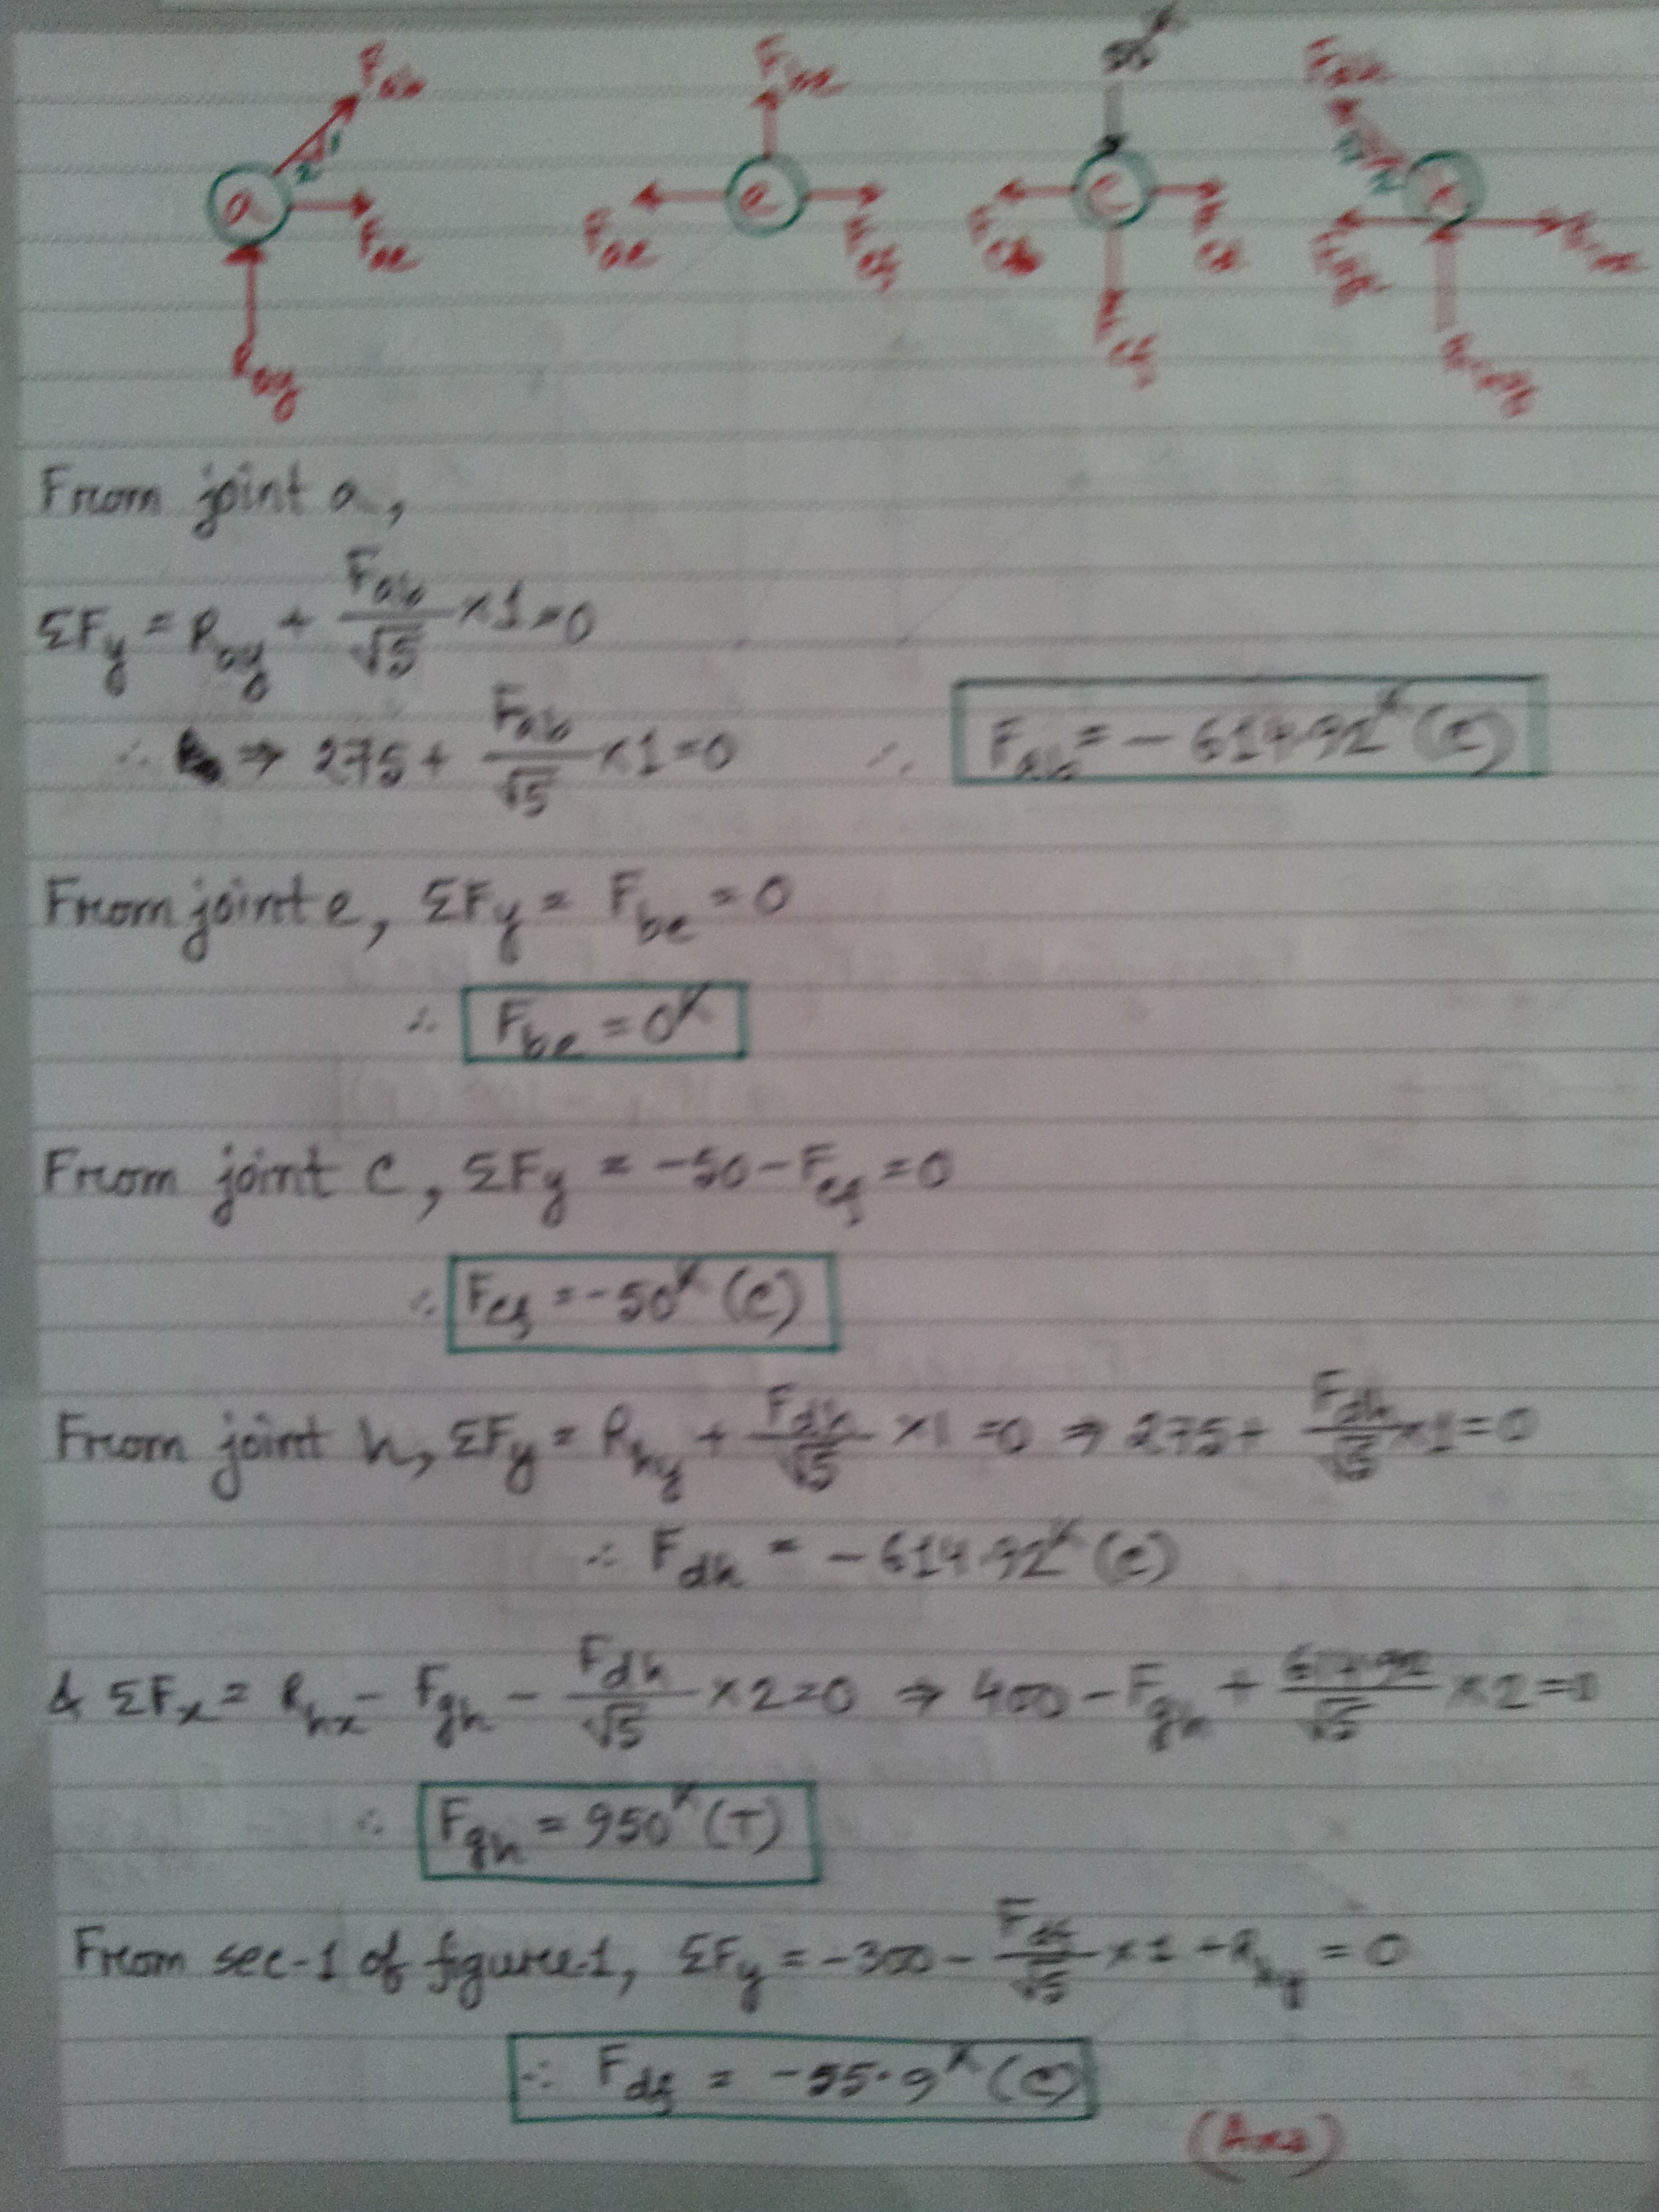 F_ab
1
2
a
F_ae
R_ay
F_be
e
F_ae
F_ef
50^k
c
F_cb
F_cd
F_cf
F_dh
1
2
F_gh
R_hx
R_hy
From joint a,
ΣF_y = R_ay + F_ab/√5 ×1=0
∴ ⇒ 275+ F_ab/√5 ×1=0 ∴ F_ab = -614.92^k (C)
From joint e, ΣF_y = F_be = 0
∴ F_be = 0^k
From joint c, ΣF_y = -50-F_cf = 0
∴ F_cf = -50^k (C)
From joint h, ΣF_y = R_hy + F_dh/√5 ×1 =0 ⇒ 275+ F_dh/√5 ×1=0
∴ F_dh = -614.92^k (C)
& ΣF_x = R_hx - F_gh - F_dh/√5 ×2=0 ⇒ 400-F_gh + 614.92/√5 ×2=0
∴ F_gh = 950^k (T)
From sec-1 of figure-1, ΣF_y = -300- F_df/√5 ×1 +R_hy = 0
∴ F_df = -55.9^k (C)
(Ans)